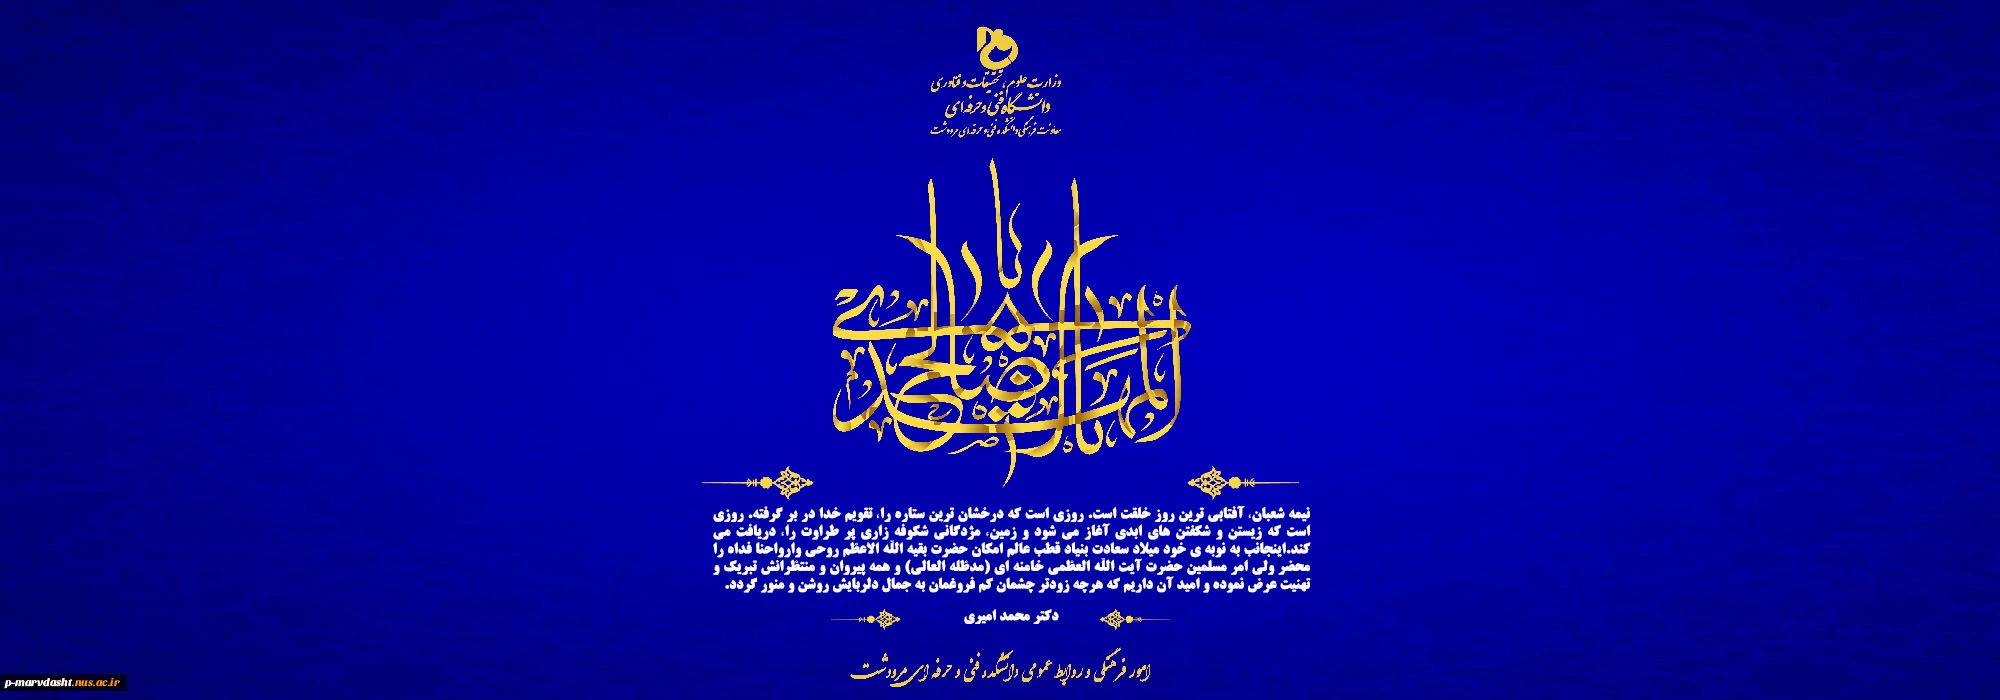 وزارت علوم، تحقیقات و فناوری
دانشگاه فنی و حرفه ای
معاونت فرهنگی دانشکده فنی و حرفه ای مرودشت
یا
نیمه شعبان، آفتابی ترین روز خلقت است. روزی است که درخشان ترین ستاره را، تقویم خدا در بر گرفته. روزی
است که زیستن و شکفتن های ابدی آغاز می شود و زمین، مژدگانی شکوفه زاری پر طراوت را، دریافت می
کند.اینجانب به نوبه ی خود میلاد سعادت بنیاد قطب عالم امکان حضرت بقیه الله الاعظم روحی وارواحنا فداه را
محضر ولی امر مسلمین حضرت آیت الله العظمی خامنه ای (مدظله العالی) و همه پیروان و منتظرانش تبریک و
تهنیت عرض نموده و امید آن داریم که هرچه زودتر چشمان کم فروغمان به جمال دلربایش روشن و منور گردد.
دکتر محمد امیری
امور فرهنگی و روابط عمومی دانشکده فنی و حرفه ای مرودشت
p-marvdasht.nus.ac.ir